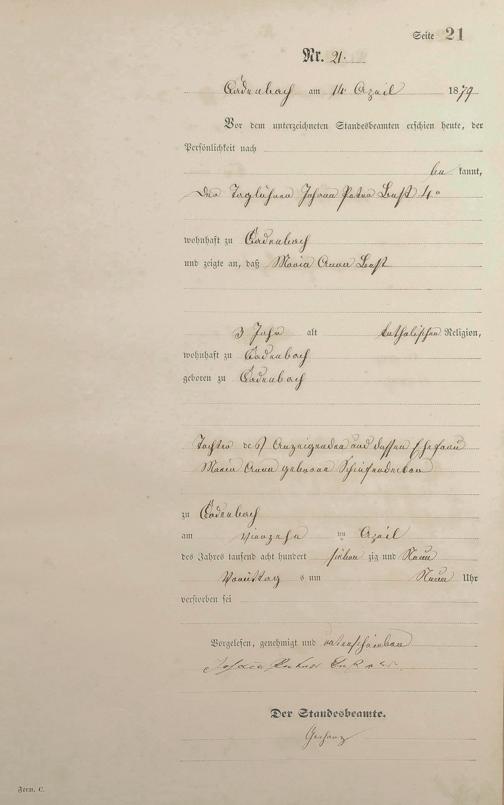 Seite 21
Nr. 21.
Cadenbach am 14 April 1879
Vor dem unterzeichneten Standesbeamten erschien heute, der
Persönlichkeit nach
be kannt,
der Taglöhner Johann Peter 4.
wohnhaft zu Cadenbach
und zeigte an, daß Maria Anna
3 Jahr alt katholischer Religion,
wohnhaft zu Cadenbach
geboren zu Cadenbach
Tochter des Anzeigenden und dessen Ehefrau
Maria Anna geborene
zu Cadenbach
am vierzehn ten April
des Jahres tausend acht hundert sieben zig und Neun
Vormittag s um Neun Uhr
verstorben sei
Vorgelesen, genehmigt und unterschrieben
Der Standesbeamte.
Form. C.